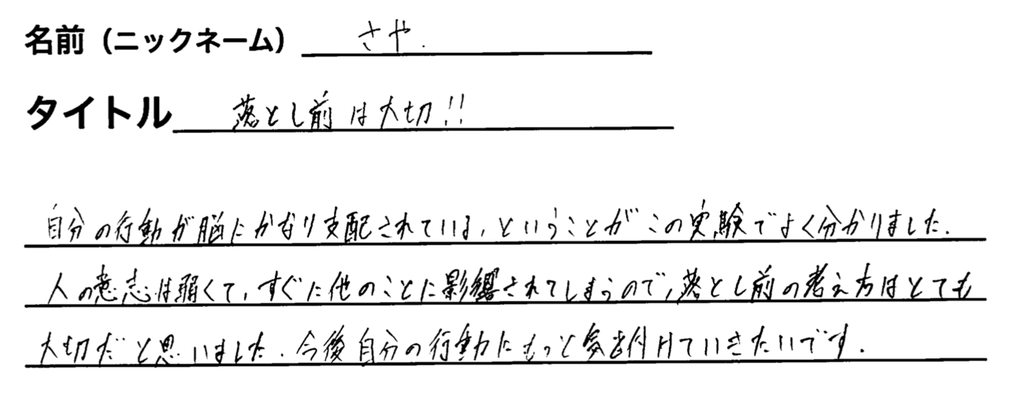 名前（ニックネーム） さや.
タイトル 落とし前は大切!!
自分の行動が脳にかなり支配されている、ということがこの実験でよく分かりました.
人の意志は弱くて、すぐに他のことに影響されてしまうので、落とし前の考え方はとても
大切だと思いました. 今後自分の行動にもっと気を付けていきたいです.